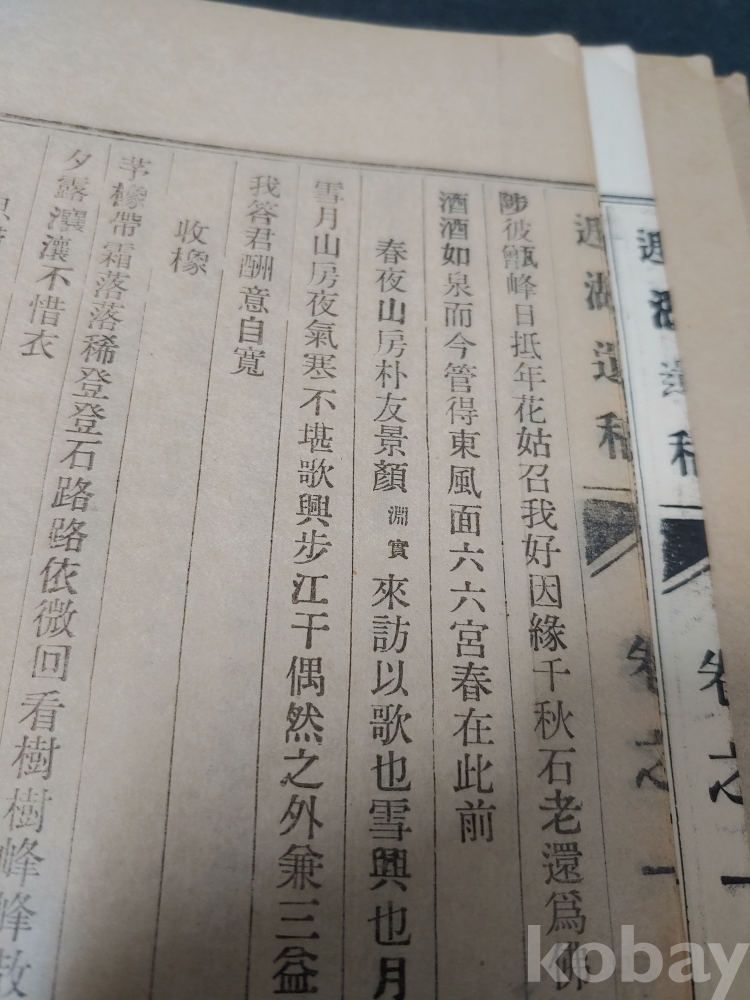 遺
卷之一
遺
卷之一
陟彼甑峰日抵年花姑召我好因緣千秋石老還爲佛
酒酒如泉而今管得東風面六六宮春在此前
春夜山房朴友景顏淵實來訪以歌也雪興也月
雪月山房夜氣寒不堪歌興步江干偶然之外兼三益
我答君酬意自寬
收橡
芧橡帶霜落落稀登登石路路依微回看樹樹峰峰
夕露瀼瀼不惜衣
kobay